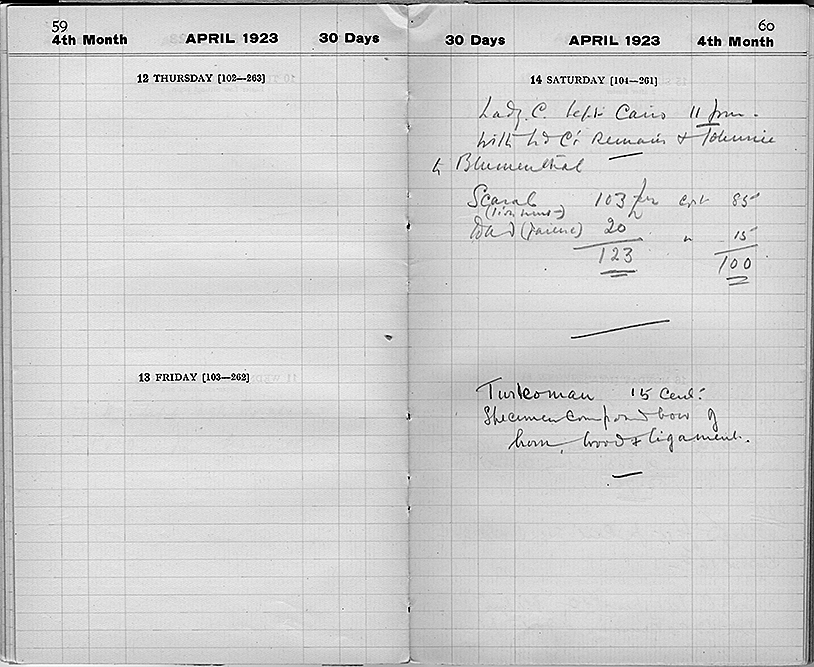 59
4th Month APRIL 1923 30 Days
12 THURSDAY [102—263]
13 FRIDAY [103—262]
60
30 Days APRIL 1923 4th Month
14 SATURDAY [104—261]
Lady C. left Cairo 11 pm.
with Ld C's Remains & Johnnie
to Blumenthal
Scarab 103 for cost 85
(lion hunt)
(faience) 20 " 15
123 100
Turkoman 15 Cent:
Specimen compound bow of
horn, wood & ligament.